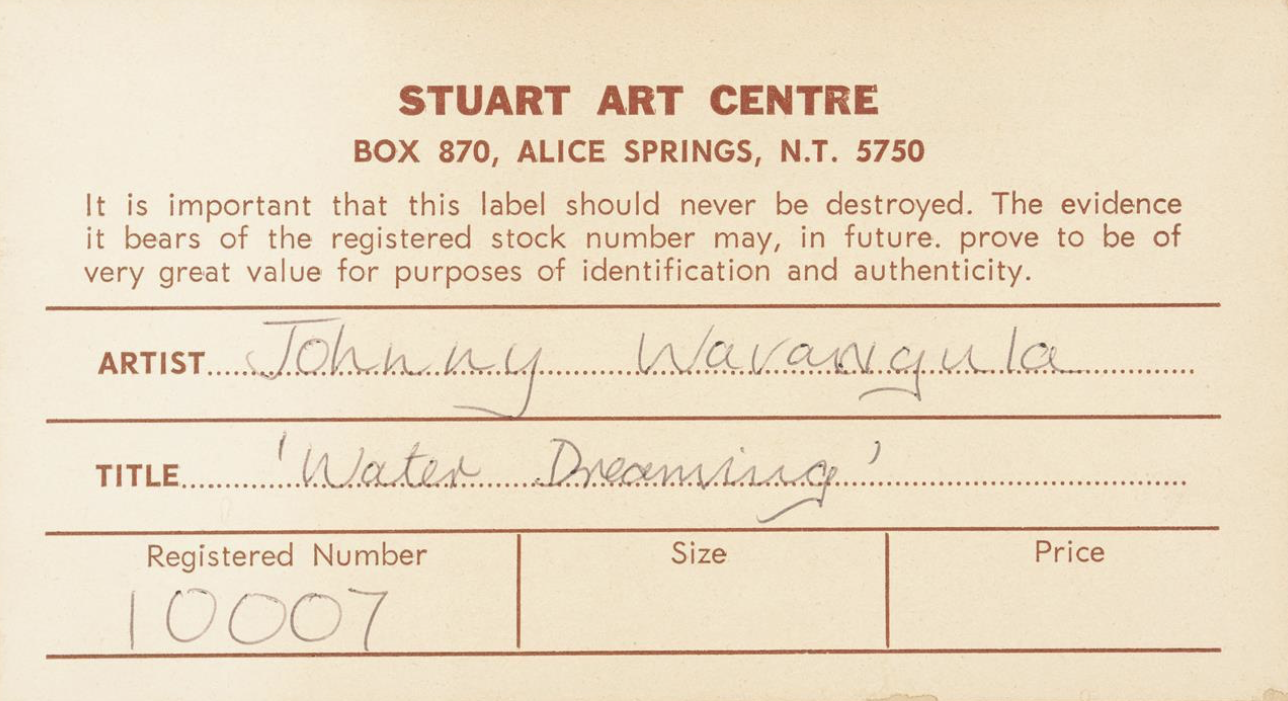 STUART ART CENTRE
BOX 870, ALICE SPRINGS, N.T. 5750
It is important that this label should never be destroyed. The evidence
it bears of the registered stock number may, in future. prove to be of
very great value for purposes of identification and authenticity.
ARTIST Johnny Warangula
TITLE 'Water Dreaming'
Registered Number Size Price
10007